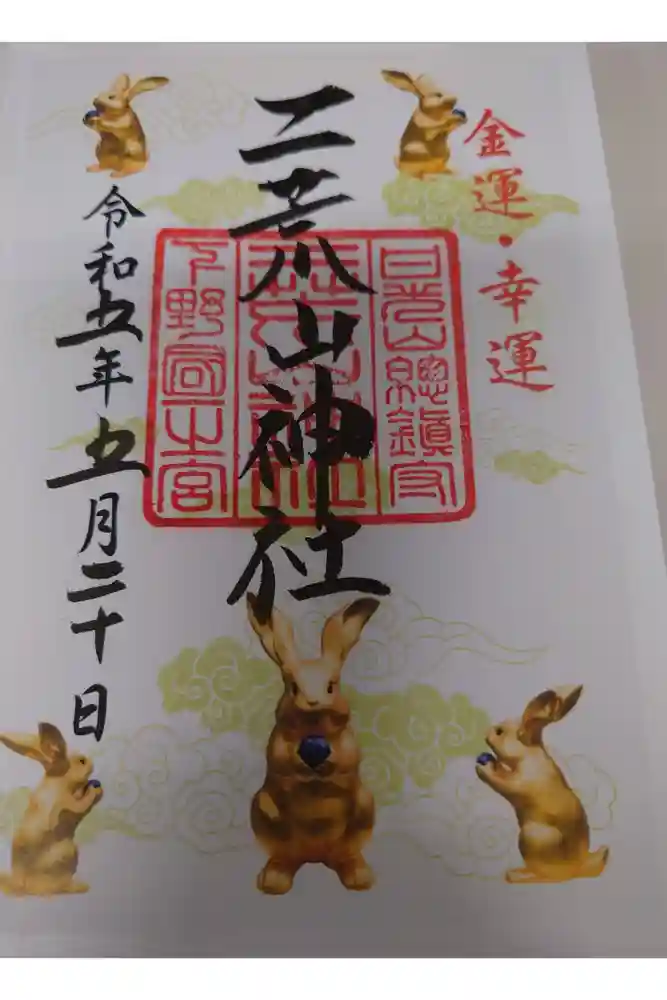 金運・幸運
日光山總鎮守
二荒山神社
下野國一之宮
令和五年五月二十日